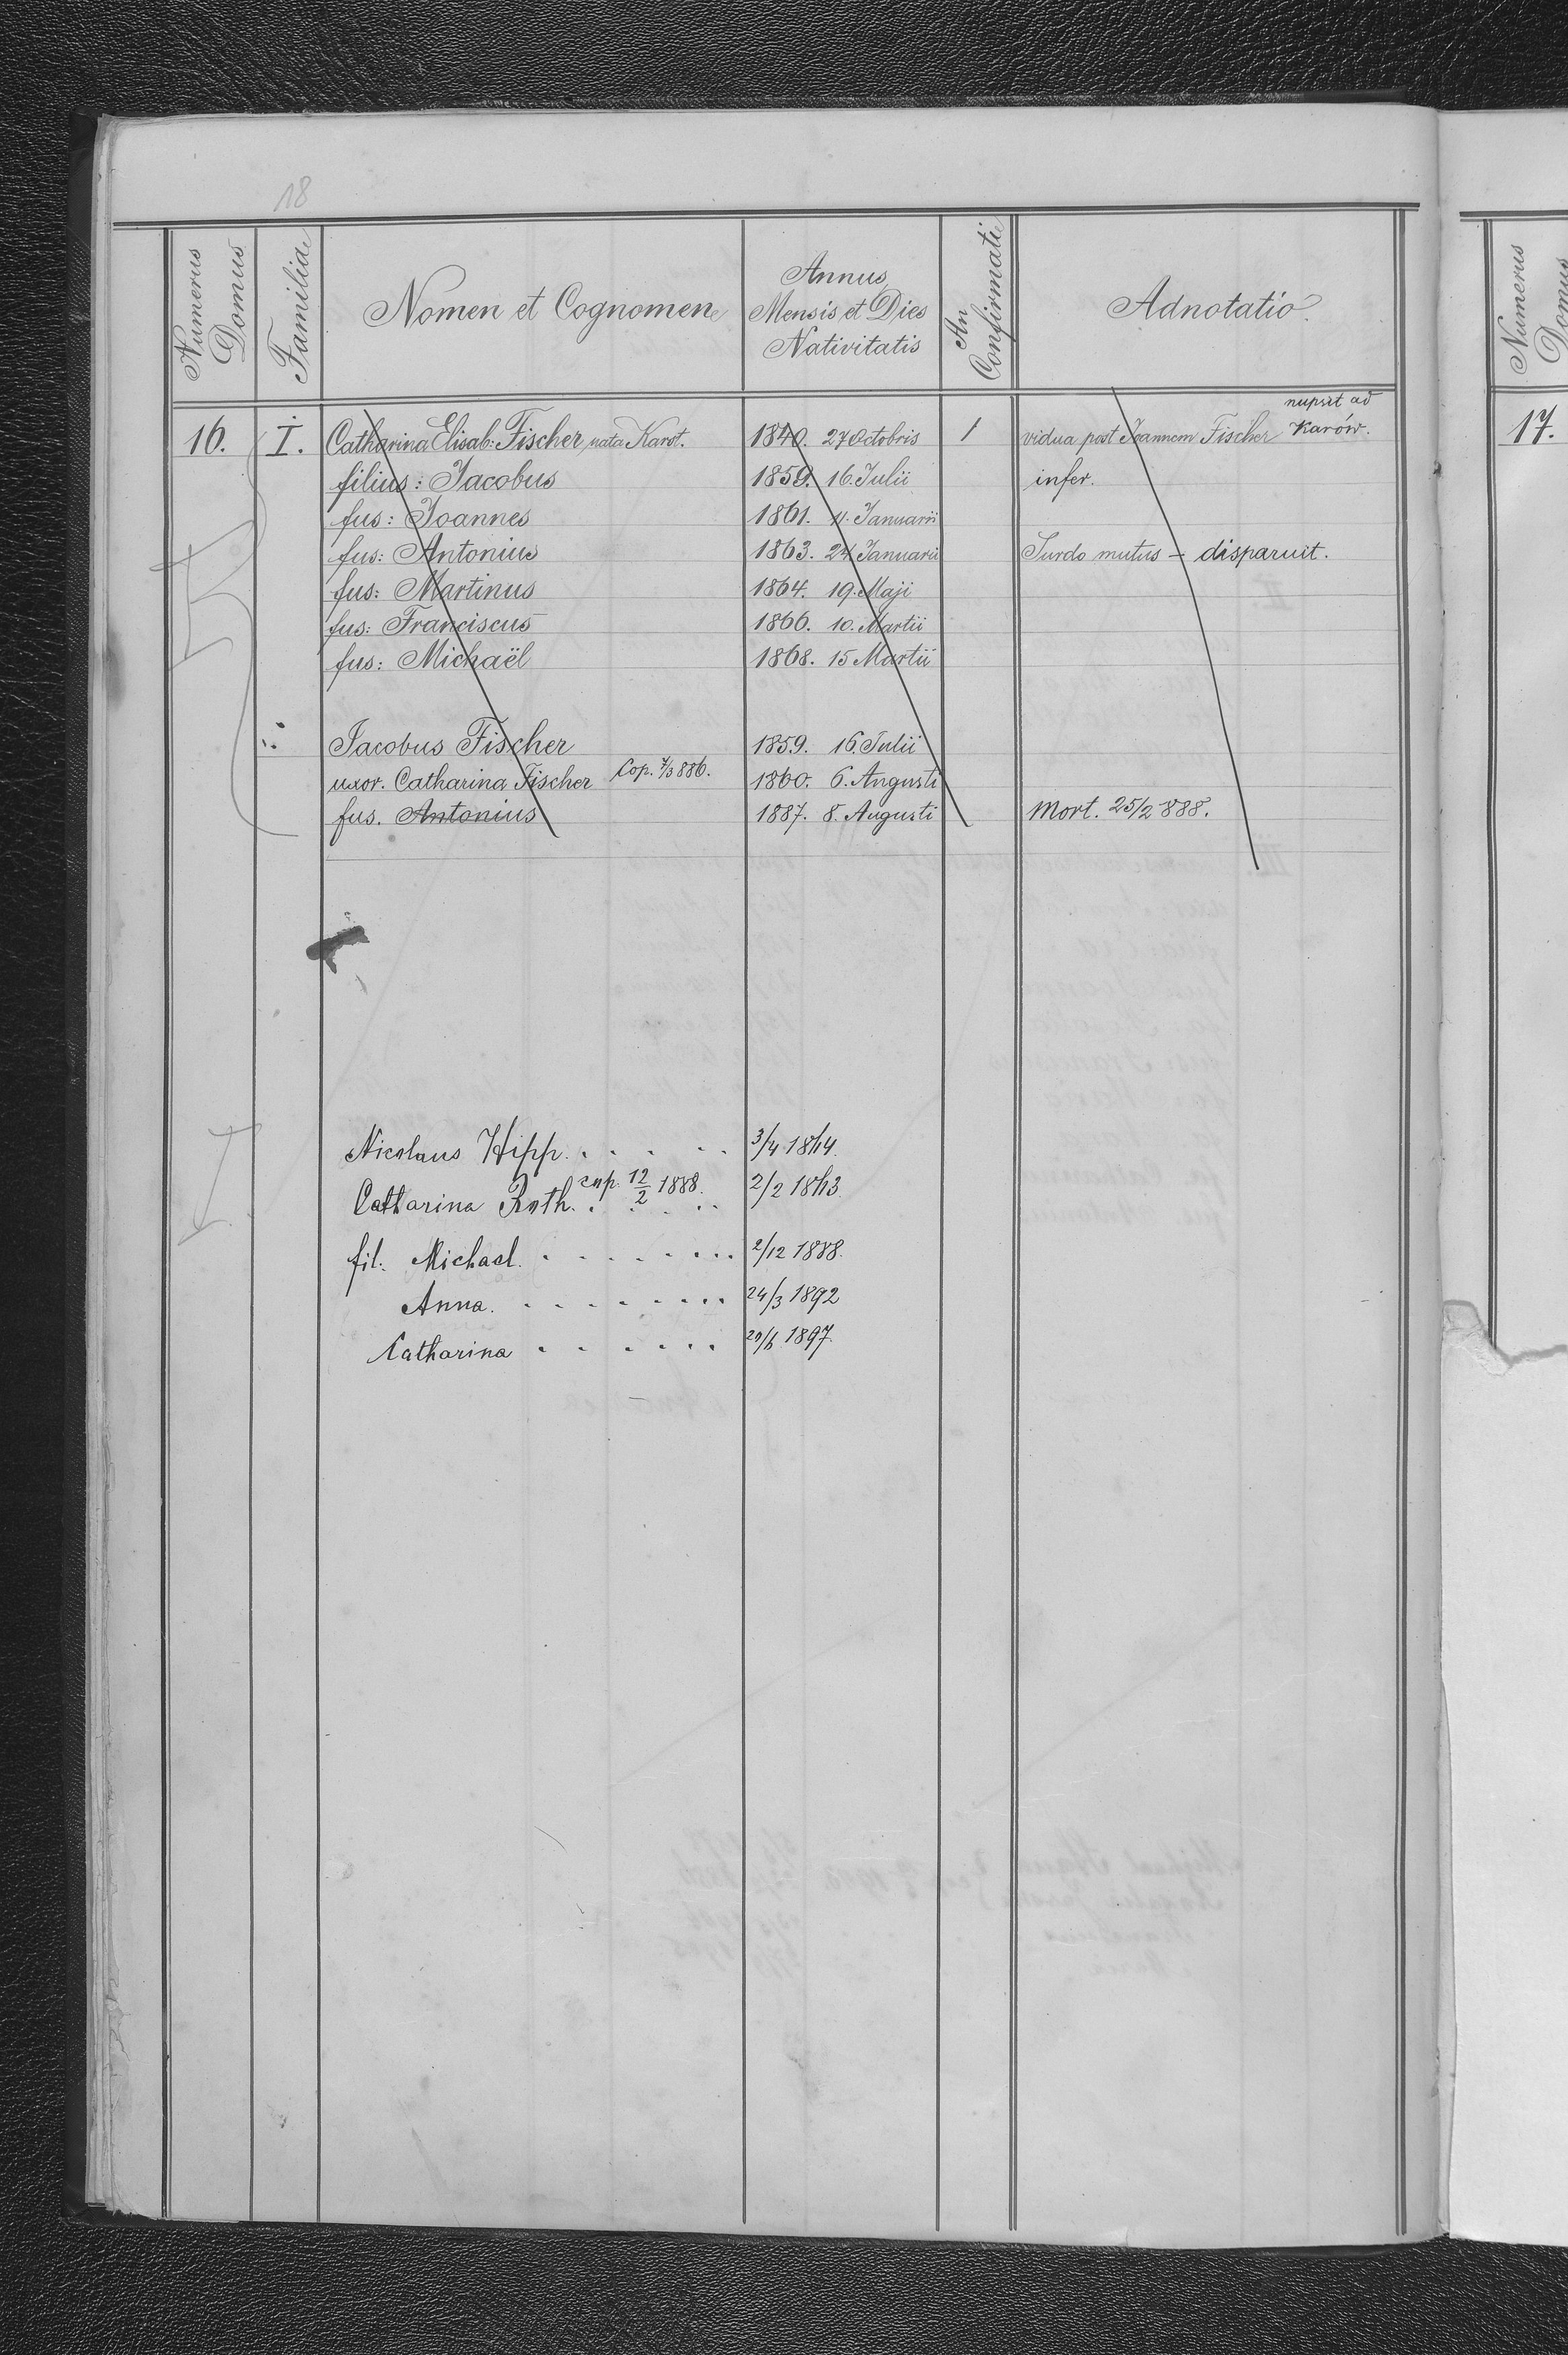 18
Numerus Domus
Familia
Nomen et Cognomen
Annus
Mensis et Dies
Nativitatis
An Confirmati
Adnotatio
Numerus
Domus
nupsit ad
16. I. Catharina Elisab: Fischer nata Karst. 1840. 27 Octobris 1 vidua post Joannem Fischer Karów.
17.
filius: Jacobus 1859. 16. Julii infer.
fus: Joannes 1861. 11. Januarii
fus: Antonius 1863. 24 Januarii Surdo mutus - disparuit.
fus: Martinus 1864. 19. Maji
fus: Franciscus 1866. 10. Martii
fus: Michaël 1868. 15 Martii
Jacobus Fischer 1859. 16. Julii
uxor. Catharina Fischer Cop. 7/3 886. 1860. 6. Augusti
fus. Antonius 1887. 8. Augusti Mort. 25/2 888.
Nicolaus Hipp. 3/4 1844.
cop. 12/2 1888.
Catharina Roth. 2/2 1843.
fil. Michael. 2/12 1888.
Anna. 24/3 1892
Catharina 20/6 1897.